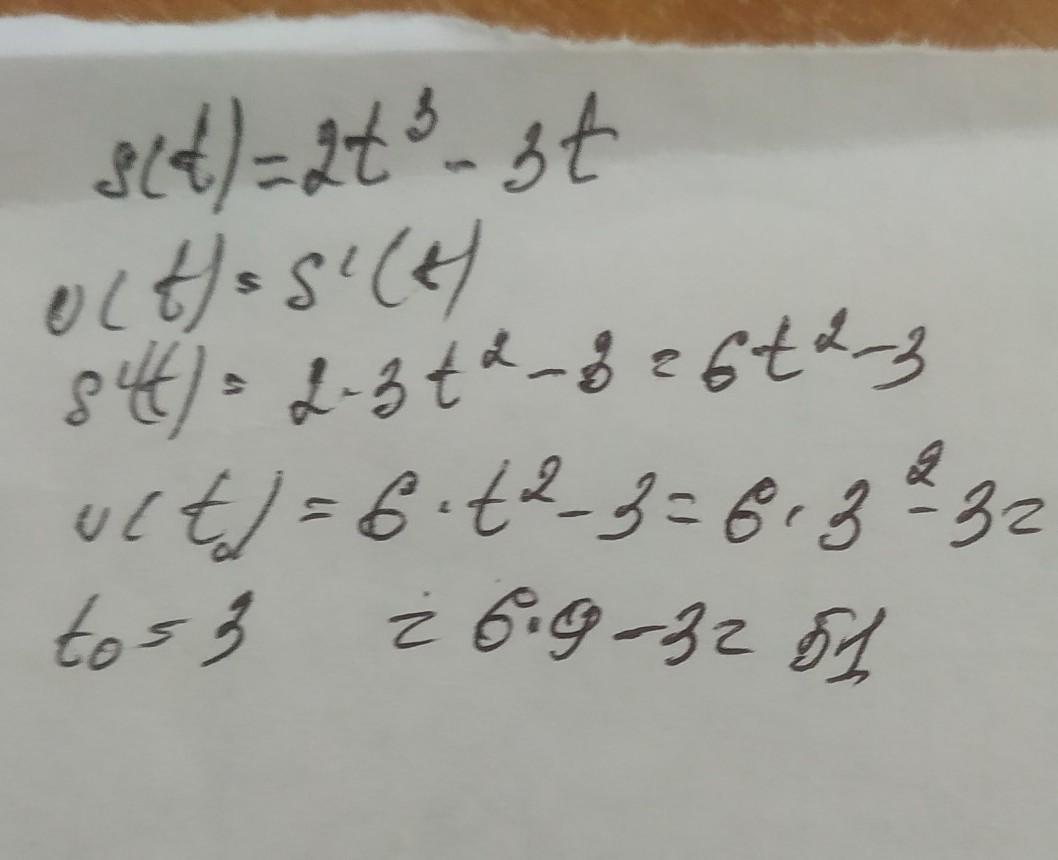 s(t)=2t³-3t
v(t)=s'(t)
s'(t)=2·3t²-3=6t²-3
v(t₀)=6·t²-3=6·3²-3=
t₀=3 =6·9-3=51